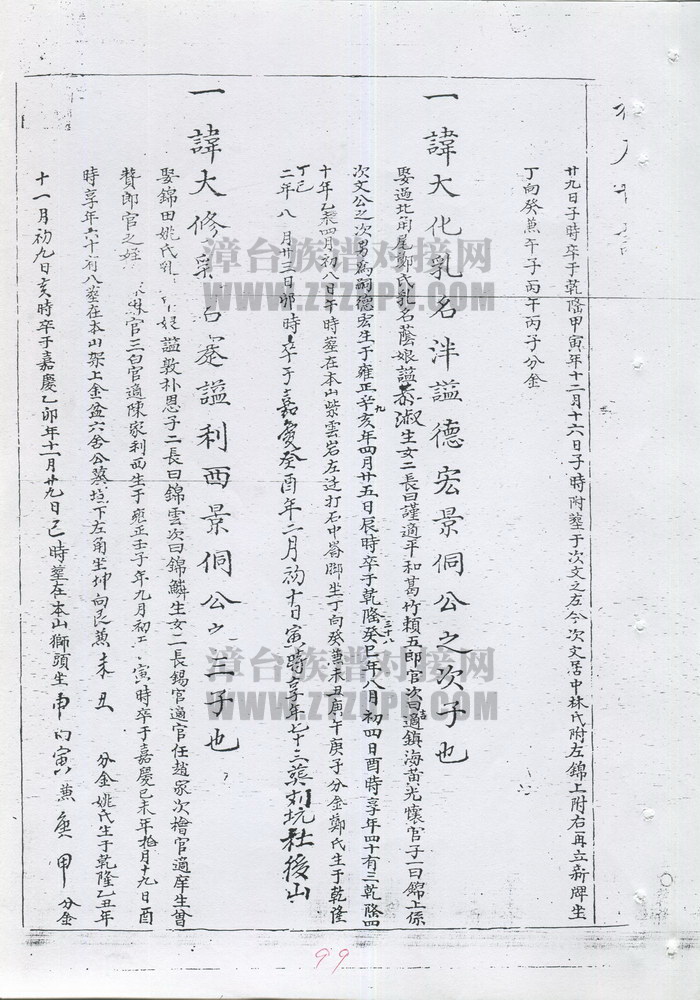 廿九日子時卒于乾隆甲寅年十二月十六日子時附塟于次文之左今次文居中林氏附左錦上附右再立新牌坐
丁向癸兼午子丙午丙子分金
一諱大化乳名泮諡德宏景侗公之次子也
娶過北用尾鄭氏乳名蔭娘諡恭淑生女二長曰謹適平和葛竹賴五郎官次曰吉適鎮海黃光懷官子一曰錦上係
次文公之次男爲嗣德宏生于雍正辛亥九年四月廿五日辰時卒于乾隆癸巳三十八年八月初四日酉時享年四十有三乾隆四
十年乙未四月初八日午時塟在本山紫雲岩左边打石中崙脚坐丁向癸兼未丑庚午庚子分金鄭氏生于乾隆
丁巳二年八月廿三日卯時卒于嘉慶癸酉年二月初十日寅時享年七十三葬刘坑社後山
一諱大修乳名蹇諡利西景侗公之三子也
娶錦田姚氏乳 諡敦朴恩子二長曰錦雲次曰錦鱗生女二長錫官適官任趙家次檜官適庠生曾
贊郎官之姪 三白官適陳家利西生于雍正壬子年九月初 寅時卒于嘉慶己未年拾月十九日酉
時享年六十有八塟在本山架上金盆六舍公墓坟下左角坐坤向艮兼未丑 分金姚氏生于乾隆乙丑年
十一月初九日亥時卒于嘉慶乙卯年十二月廿九日巳時塟在本山獅頭坐申向寅兼庚甲分金
99
漳台族谱对接网
WWW.ZTZUPU.COM
漳台族谱对接网
WWW.ZTZUPU.COM